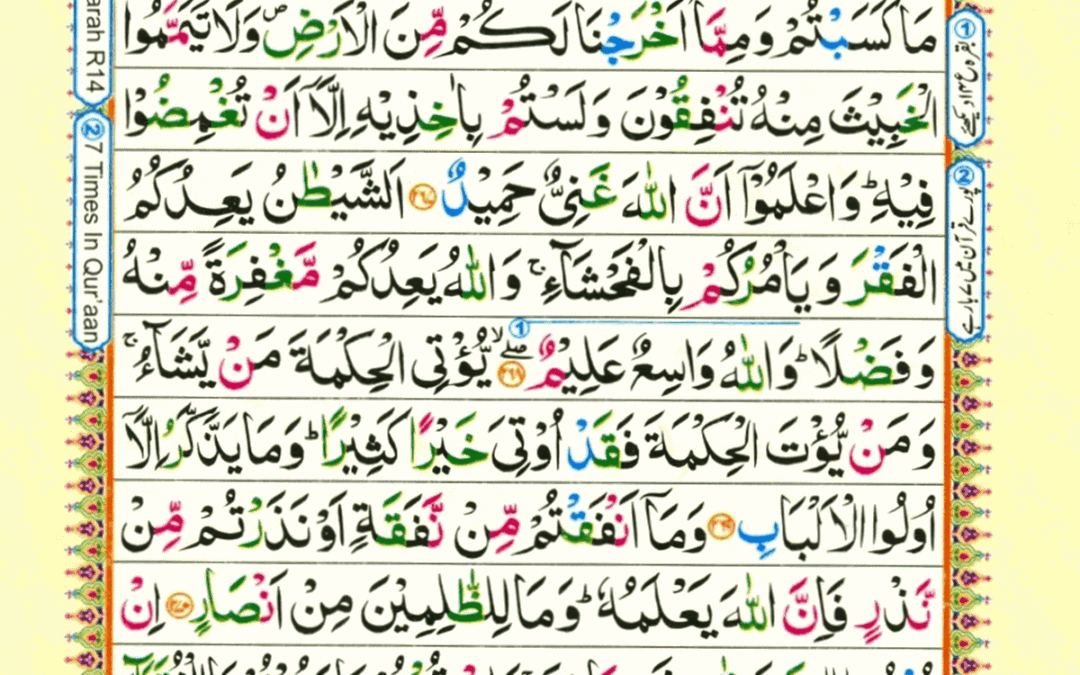 مَا كَسَبْتُمْ وَمِمَّاۤ اَخْرَجْنَا لَكُمْ مِّنَ الْاَرْضِ ۪ وَلَا تَيَمَّمُوا
الْخَبِيْثَ مِنْهُ تُنْفِقُوْنَ وَلَسْتُمْ بِاٰخِذِيْهِ اِلَّاۤ اَنْ تُغْمِضُوْا
فِيْهِ ؕ وَاعْلَمُوْۤا اَنَّ اللّٰهَ غَنِيٌّ حَمِيْدٌ ﴿۲۶۷﴾ اَلشَّيْطٰنُ يَعِدُكُمُ
الْفَقْرَ وَيَاْمُرُكُمْ بِالْفَحْشَآءِ ۚ وَاللّٰهُ يَعِدُكُمْ مَّغْفِرَةً مِّنْهُ
وَفَضْلًا ؕ وَاللّٰهُ وَاسِعٌ عَلِيْمٌ ﴿۲۶۸﴾ۙۖ يُّؤْتِی الْحِكْمَةَ مَنْ يَّشَآءُ ۚ
وَمَنْ يُّؤْتَ الْحِكْمَةَ فَقَدْ اُوْتِیَ خَيْرًا كَثِيْرًا ؕ وَمَا يَذَّكَّرُ اِلَّاۤ
اُولُوا الْاَلْبَابِ ﴿۲۶۹﴾ وَمَاۤ اَنْفَقْتُمْ مِّنْ نَّفَقَةٍ اَوْ نَذَرْتُمْ مِّنْ
نَّذْرٍ فَاِنَّ اللّٰهَ يَعْلَمُهٗ ؕ وَمَا لِلظّٰلِمِيْنَ مِنْ اَنْصَارٍ ﴿۲۷۰﴾ اِنْ
arah R14
② 7 Times In Qur'aan
①
②
①